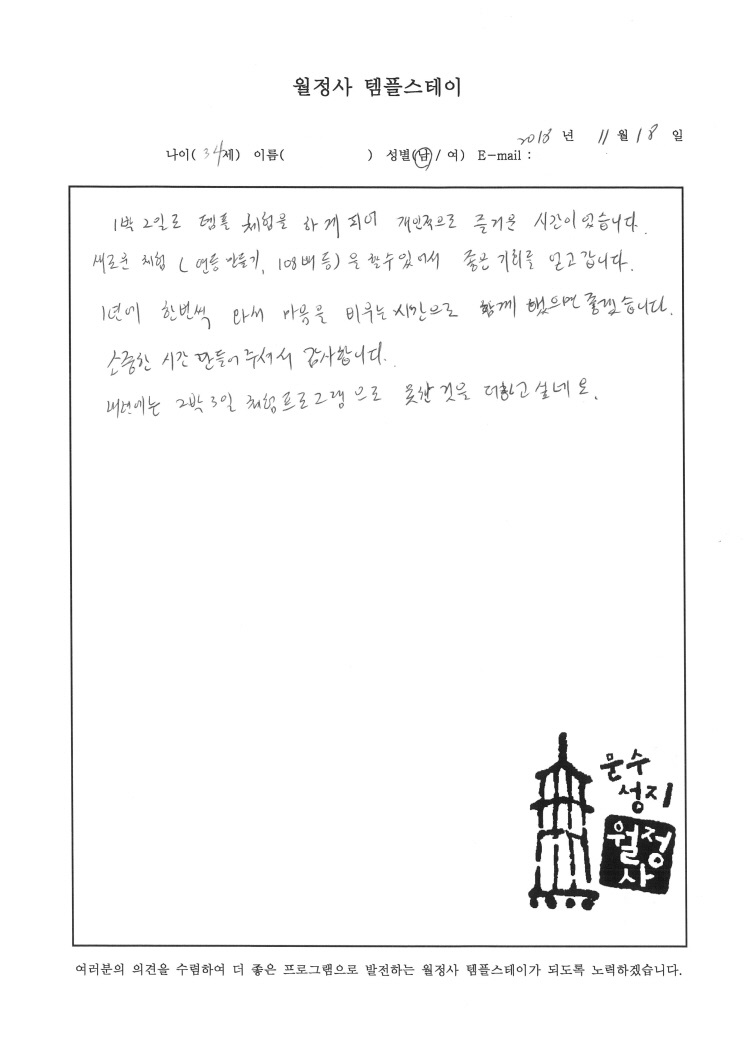 월정사 템플스테이
2018 년 11 월 18 일
나이( 34세) 이름( ) 성별(남/ 여) E-mail :
1박 2일로 템플 체험을 하게 되어 개인적으로 즐거운 시간이었습니다.
새로운 체험 ( 연등 만들기, 108배 등) 을 할수 있어서 좋은 기회를 얻고 갑니다.
1년에 한번씩 와서 마음을 비우는 시간으로 함께 했으면 좋겠습니다.
소중한 시간 만들어 주셔서 감사합니다.
내년에는 2박 3일 체험프로그램으로 못한 것을 더하고 싶네요.
문수
성지
월정
사
여러분의 의견을 수렴하여 더 좋은 프로그램으로 발전하는 월정사 템플스테이가 되도록 노력하겠습니다.